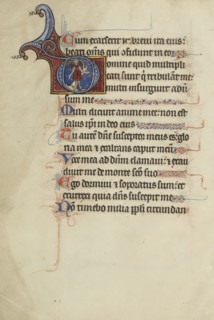 Cum exarserit in brevi ira eius:
beati omnes qui confidunt in eo.
Domine quid multipli
cati sunt qui tribulant me:
multi insurgunt adv̄
sum me
Multi dicunt anime mee: non est
salus ipsi in deo eius
Tu autem dñe susceptor meus es: glo
ria mea et exaltans caput meū
Voce mea ad dñm clamavi: et exau
divit me de monte scō suo
Ego dormivi et soporatus sum: et
exurrexi quia dñs suscepit me
Nō timebo milia ppli circundan